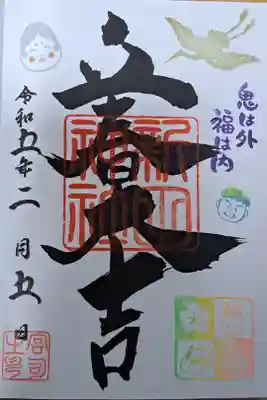 鬼は外
福は内
立春大吉
新山
神社
令和五年二月五日